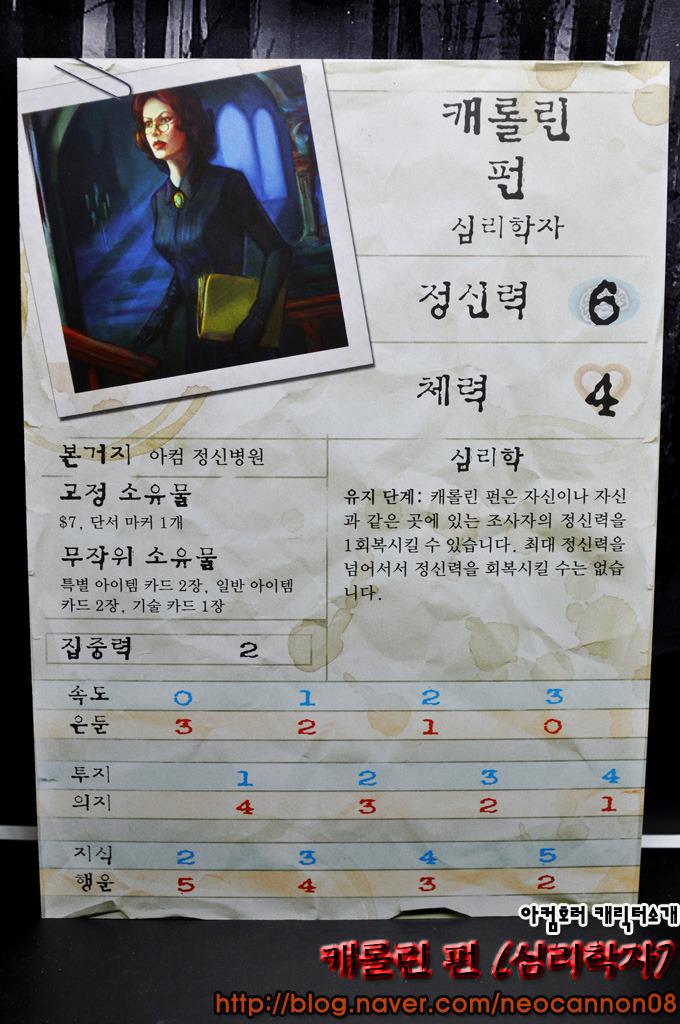 캐롤린
펀
심리학자
정신력 6
체력 4
본거지 아컴 정신병원
고정 소유물
$7, 단서 마커 1개
무작위 소유물
특별 아이템 카드 2장, 일반 아이템
카드 2장, 기술 카드 1장
집중력 2
심리학
유지 단계: 캐롤린 펀은 자신이나 자신
과 같은 곳에 있는 조사자의 정신력을
1회복시킬 수 있습니다. 최대 정신력을
넘어서서 정신력을 회복시킬 수는 없습
니다.
속도 0 1 2 3
은둔 3 2 1 0
투지 1 2 3 4
의지 4 3 2 1
지식 2 3 4 5
행운 5 4 3 2
아컴호러 캐릭터소개
캐롤린 펀 (심리학자)
http://blog.naver.com/neocannon08